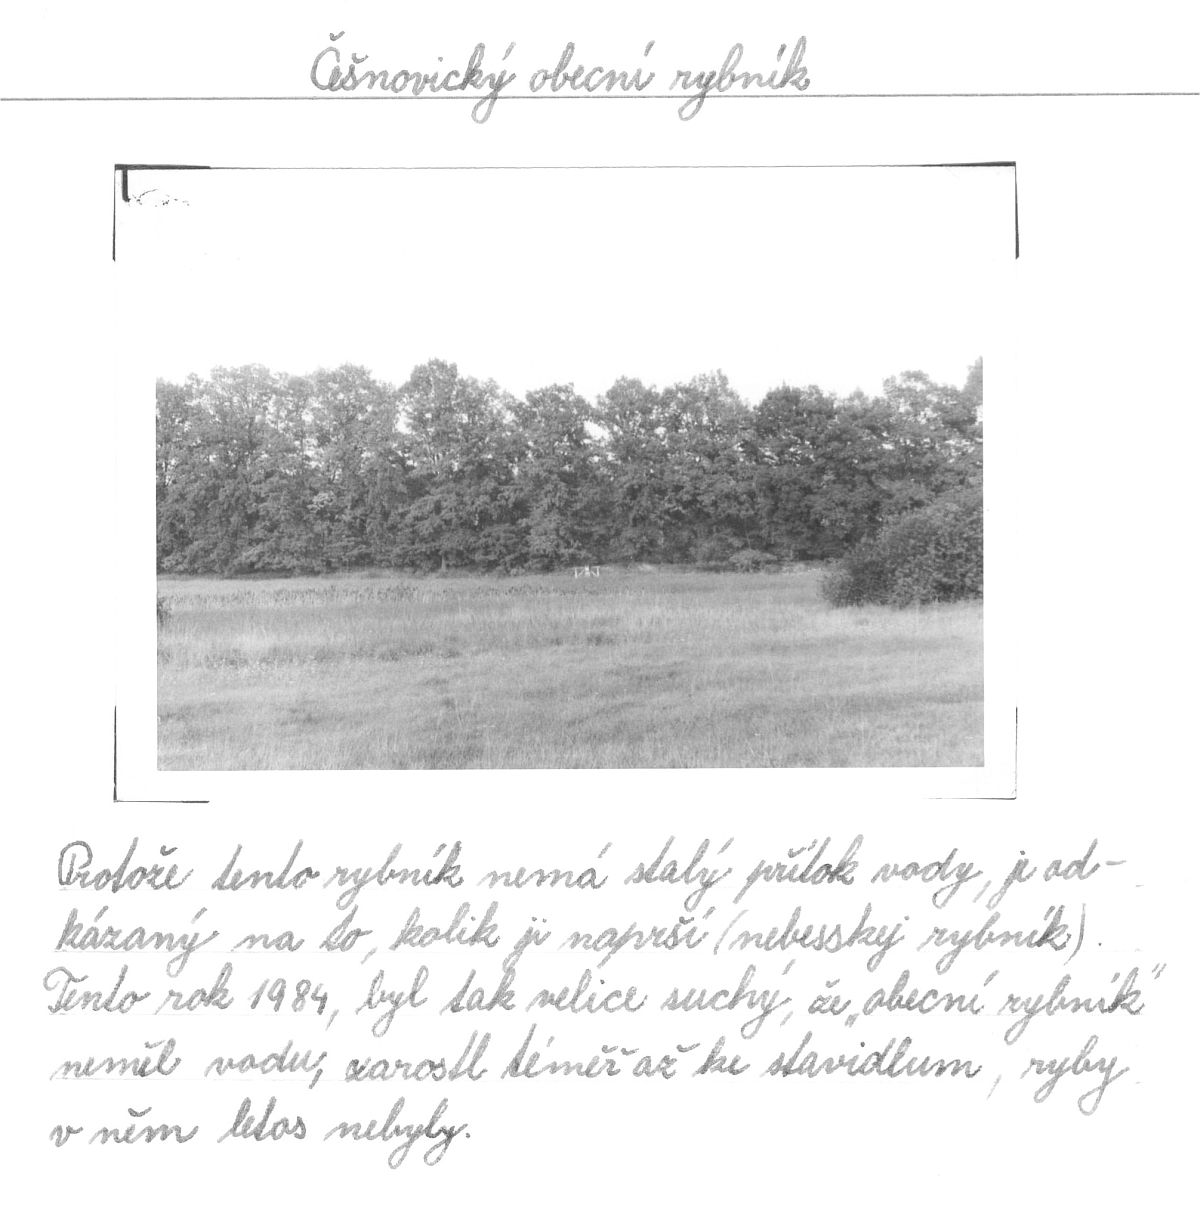 Češnovický obecní rybník
Protože tento rybník nemá stalý přítok vody, je od-
kázaný na to, kolik ji naprší (nebesskej rybník).
Tento rok 1984, byl tak velice suchý, že „obecní rybník“
neměl vodu, zarostl téměř až ke stavidlum, ryby
v něm letos nebyly.